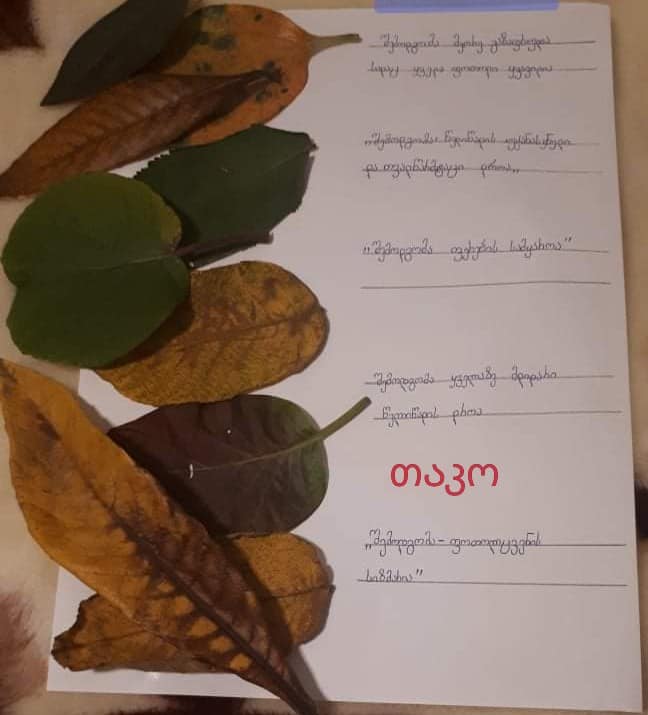 შემოდგომა მეორე გაზაფხულია
სადაც ყველა ფოთოლი ყვავილია
„შემოდგომა წელიწადის უკანასკნელი
და თვალწარმტაცი დროა„
"შემოდგომა ფერების სამყაროა"
შემოდგომა ყველაზე მდიდარი
წელიწადის დროა
თაკო
„შემოდგომა - ფოთოლცვენის
სიზმარია"